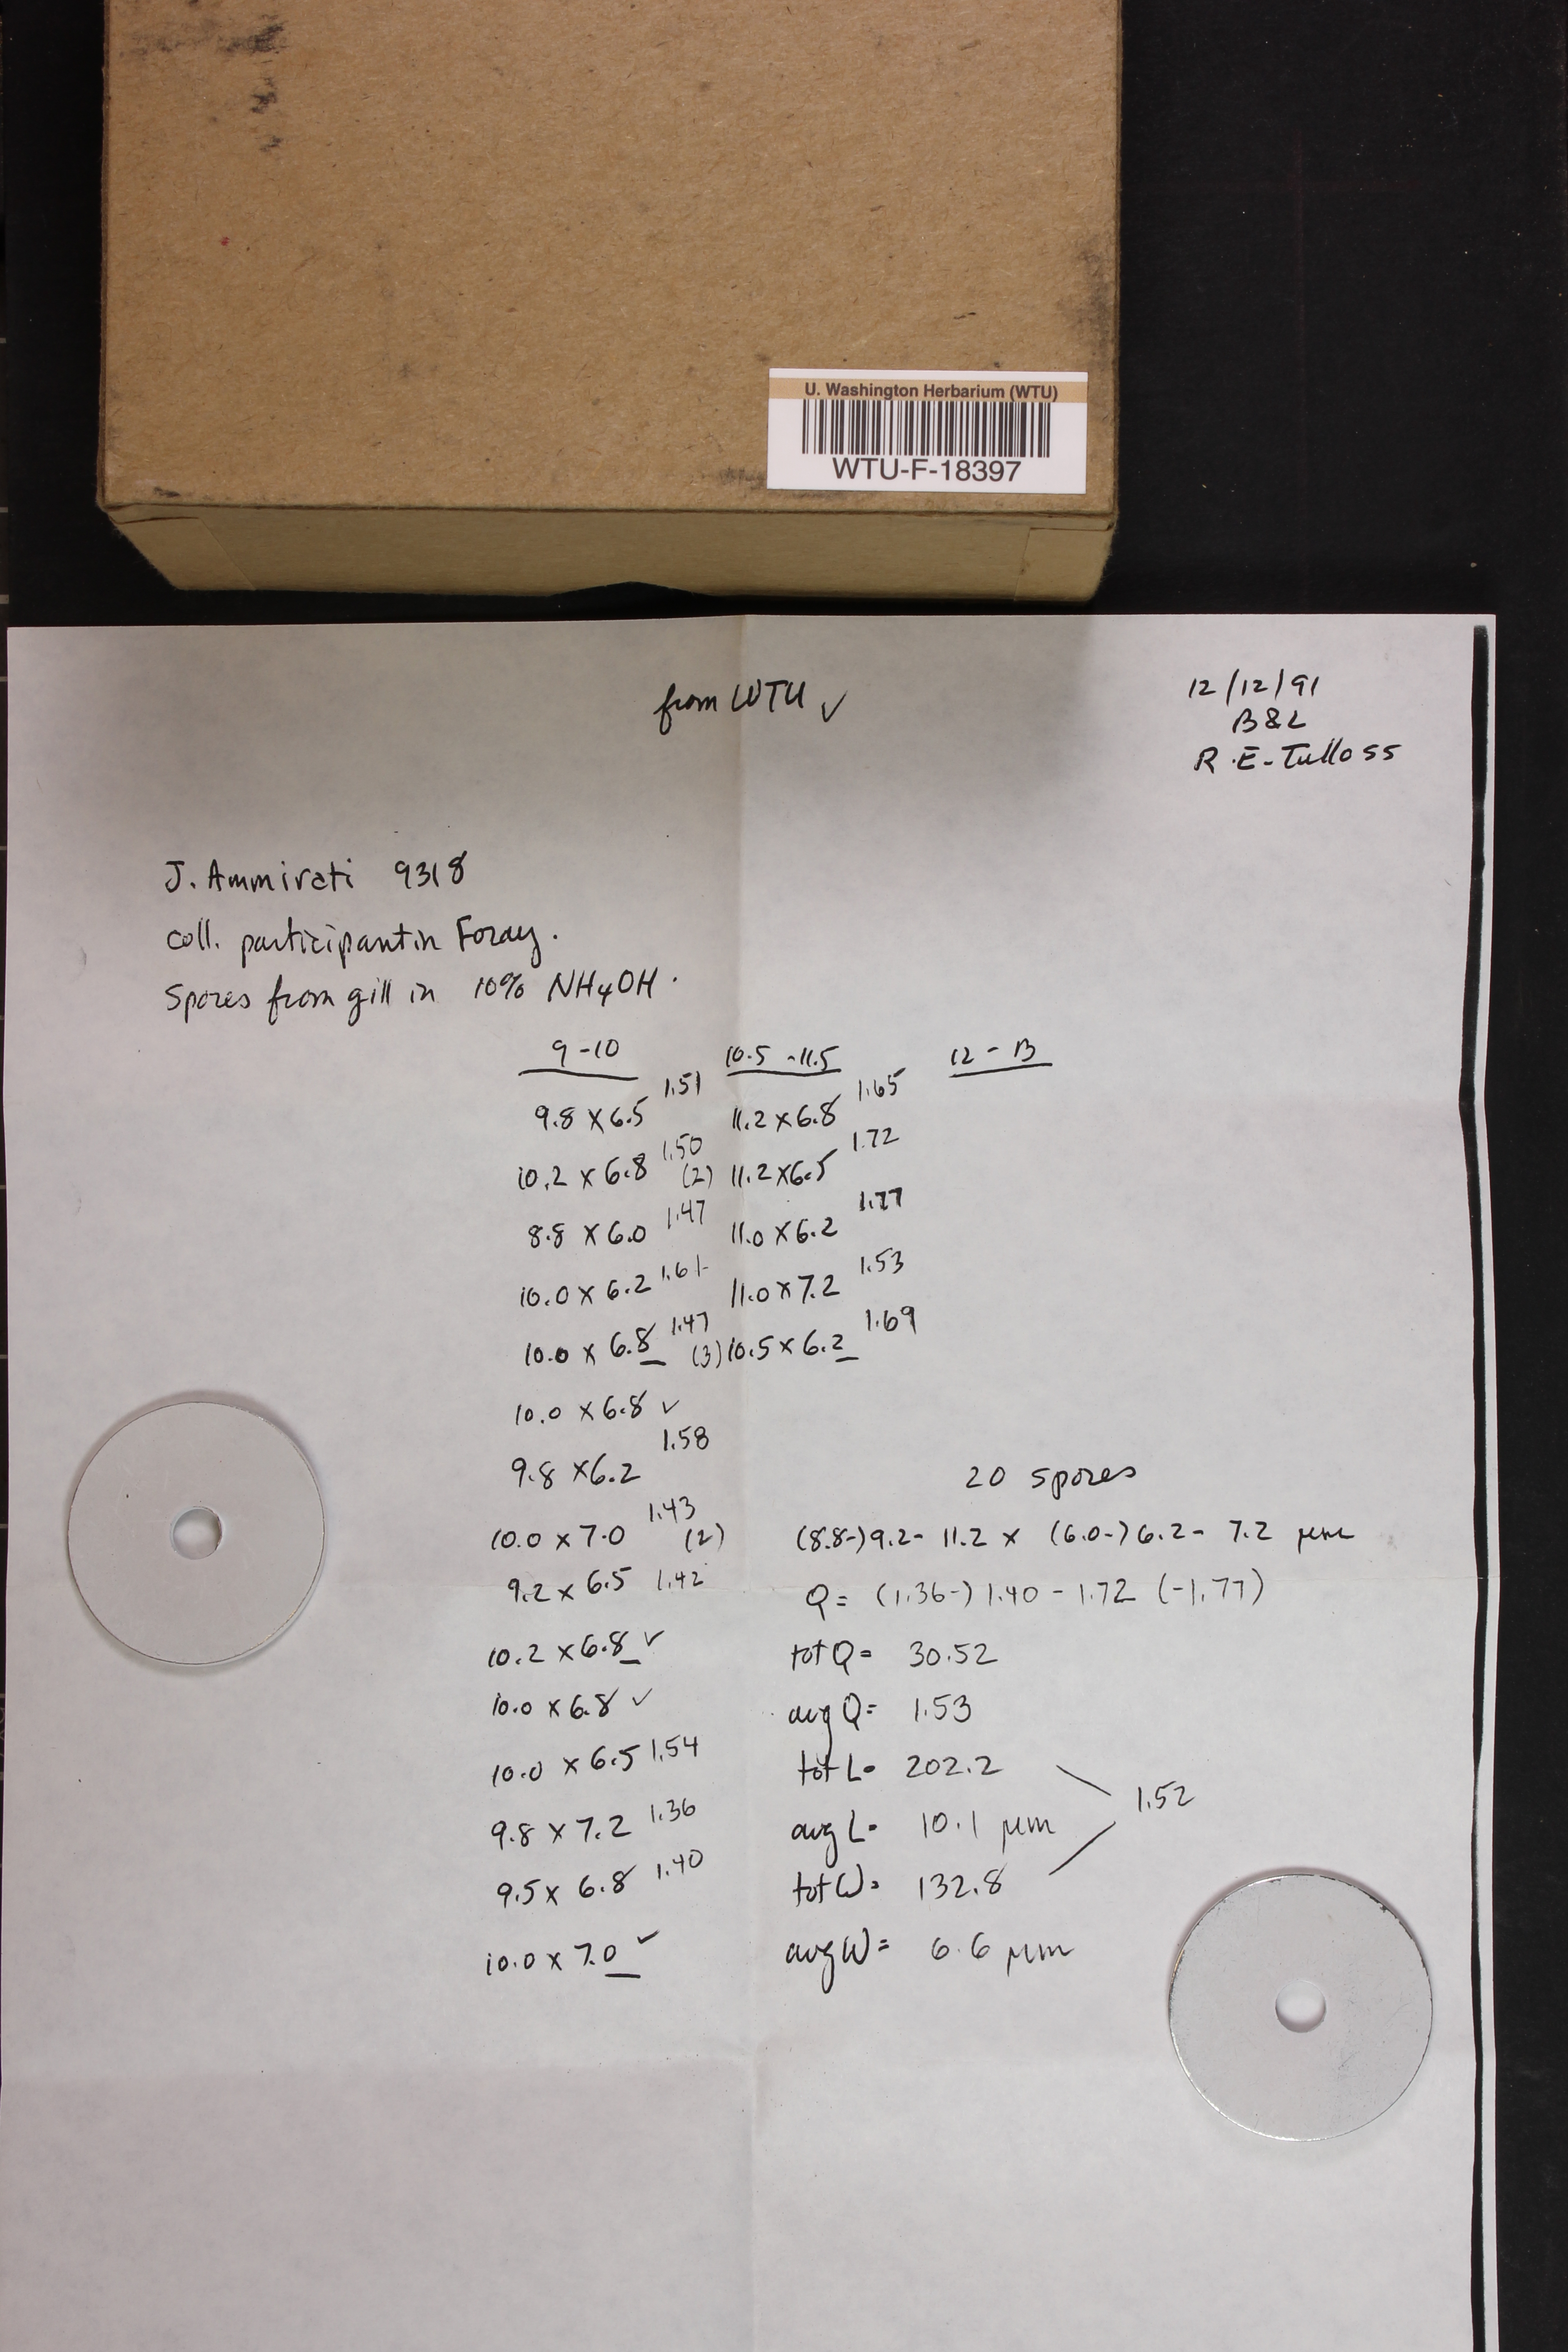 U. Washington Herbarium (WTU)
WTU-F-18397
from WTU ✓
12/12/91
B&L
R.E. Tulloss
J. Ammirati 9318
coll. participant in Foray.
Spores from gill in 10% NH4OH.
9-10 10.5-11.5 12-13
9.8 x 6.5 1.51 11.2 x 6.8 1.65
10.2 x 6.8 1.50 (2) 11.2 x 6.5 1.72
8.8 x 6.0 1.47 11.0 x 6.2 1.77
10.0 x 6.2 1.61 11.0 x 7.2 1.53
10.0 x 6.8 1.47 (3) 10.5 x 6.2 1.69
10.0 x 6.8 ✓
9.8 x 6.2 1.58
20 spores
10.0 x 7.0 1.43 (2) (8.8-)9.2- 11.2 x (6.0-)6.2- 7.2 µm
9.2 x 6.5 1.42 Q = (1.36-) 1.40 - 1.72 (-1.77)
10.2 x 6.8 ✓ tot Q = 30.52
10.0 x 6.8 ✓ avg Q = 1.53
10.0 x 6.5 1.54 tot L = 202.2
1.52
9.8 x 7.2 1.36 avg L = 10.1 µm
9.5 x 6.8 1.40 tot W = 132.8
10.0 x 7.0 ✓ avg W = 6.6 µm